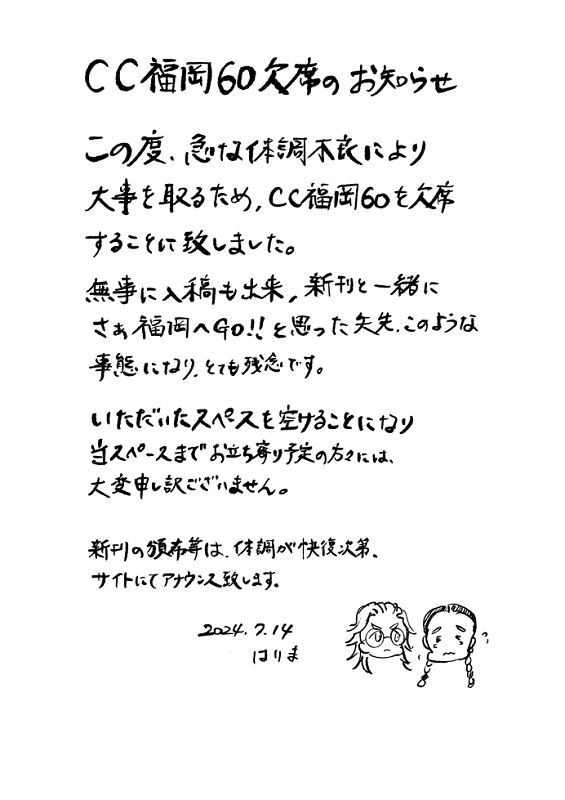 CC福岡60欠席のお知らせ
この度、急な体調不良により
大事を取るため、CC福岡60を欠席
することに致しました。
無事に入稿も出来、新刊と一緒に
さぁ福岡へGO!!と思った矢先、このような
事態になり、とても残念です。
いただいたスペースを空けることになり
当スペースまでお立ち寄り予定の方々には、
大変申し訳ございません。
新刊の頒布等は、体調が快復次第、
サイトにてアナウンス致します。
2024.7.14
はりま
?